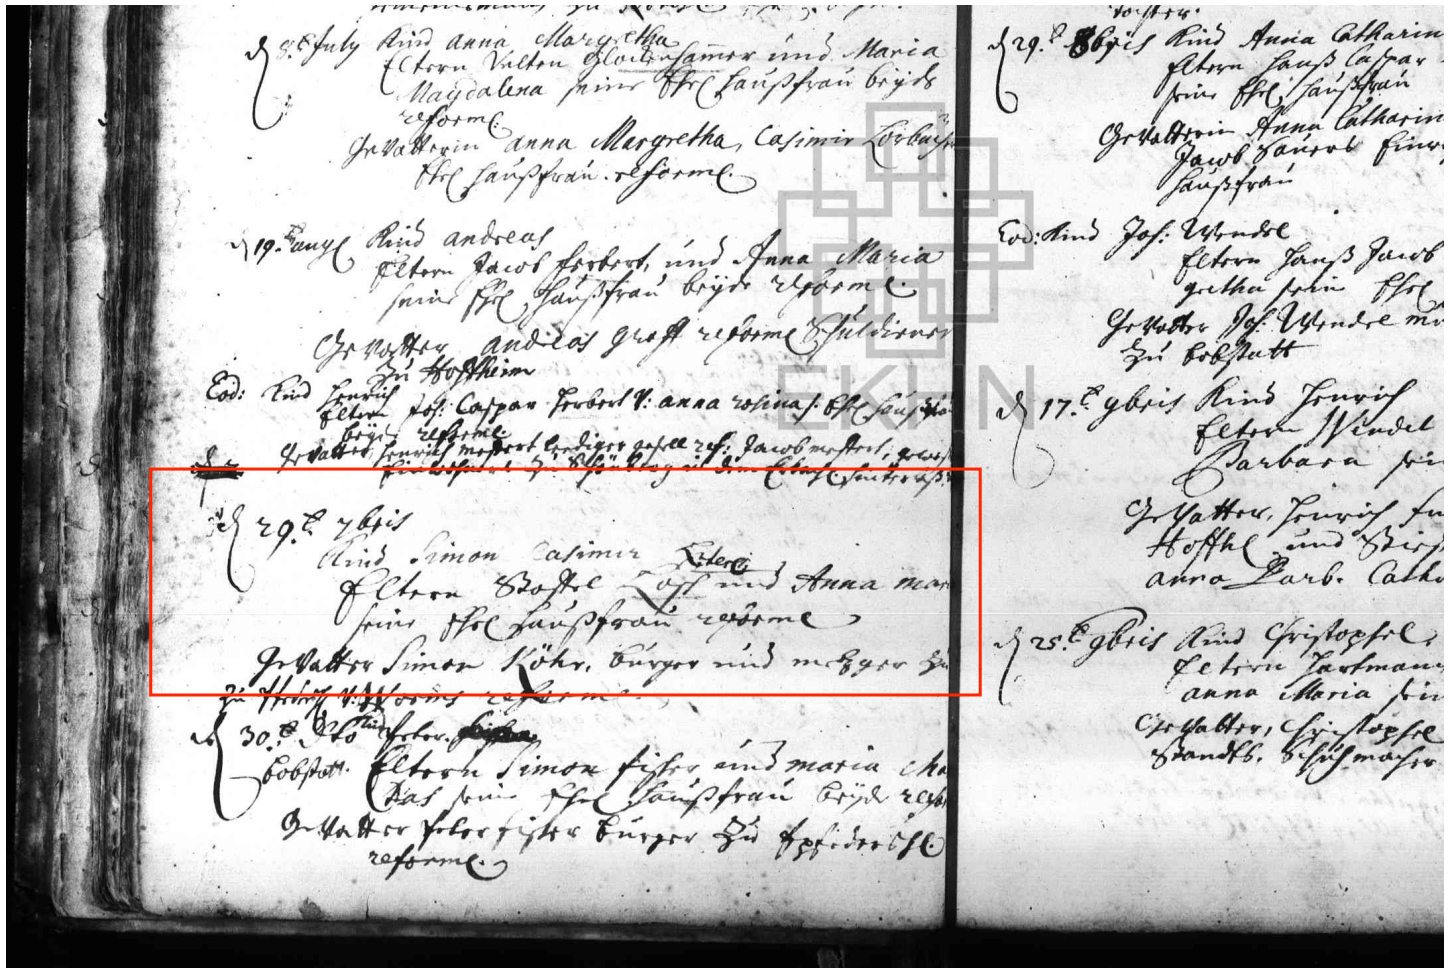 d 8.t July Kind Anna Margretha
Eltern Velten Glockenhamer und Maria
Magdalena seine Ehel haußfrau beyde
reforml.
Gevatterin anna Margretha, Casimir
Ehel haußfrau. reforml.
d 19.t augl Kind andreas
Eltern Jacob ferbert, und Anna Maria
seine Ehel. haußfrau beyde reforml.
Gevatter andreas Groff reforml Schuldiener
zu Hoffheim
Eod: Kind Henrich
Eltern Joh: Caspar Herbert V: anna rosina s. Ehel hauß
beyde reforml.
Gevatter, Henrich lediger gesell ref: Jacob
Einwohner zu
d 29.t 7bris
Kind Simon Casimir
Eltern Stoffel und Anna mar
seine Ehel haußfrau reforml
Gevatter Simon Köhr, burger und metzger zu
zu V: Worms reforml.
d 30.t dto Kind Peter.
bobstatt. Eltern Simon fisher und maria
seine Ehel haußfrau beyde
Gevatter Peter fister burger zu
reforml.
tochter.
d 29.t 8bris Kind Anna Catharin
Eltern Hanß Caspar
seine Ehel. haußfrau
Gevatterin Anna Catharin
Jacob Sauers Einw
haußfrau
Eod: Kind Joh: Wendel
Eltern Hanß Jacob
gretha sein Ehel
Gevatter Joh: Wendel
zu bobstatt
d 17.t 9bris Kind Henrich
Eltern Windel
Barbara sein
Gevatter, Henrich
Hoffh und
anna Barb. Catha
d 25.t 9bris Kind Christophel,
Eltern Hartmann
anna Maria sein
Gevatter, Christophel
Standts, Schuhmacher
EKHN